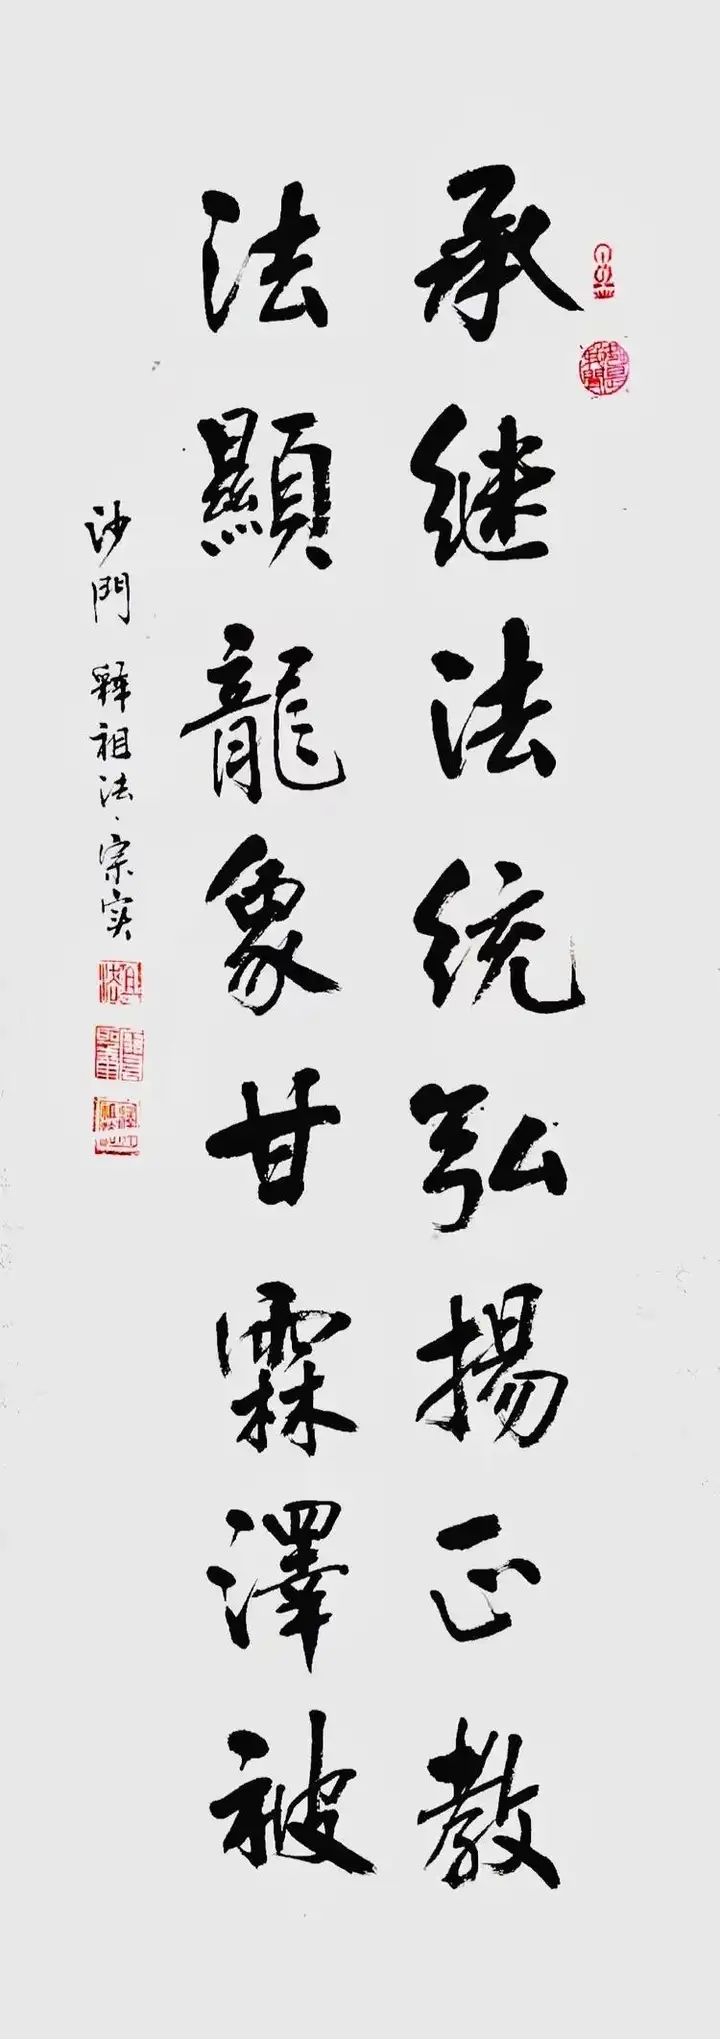 承继法统弘揚正教
法顯龍象甘霖澤被
沙門 釋祖法、宗实